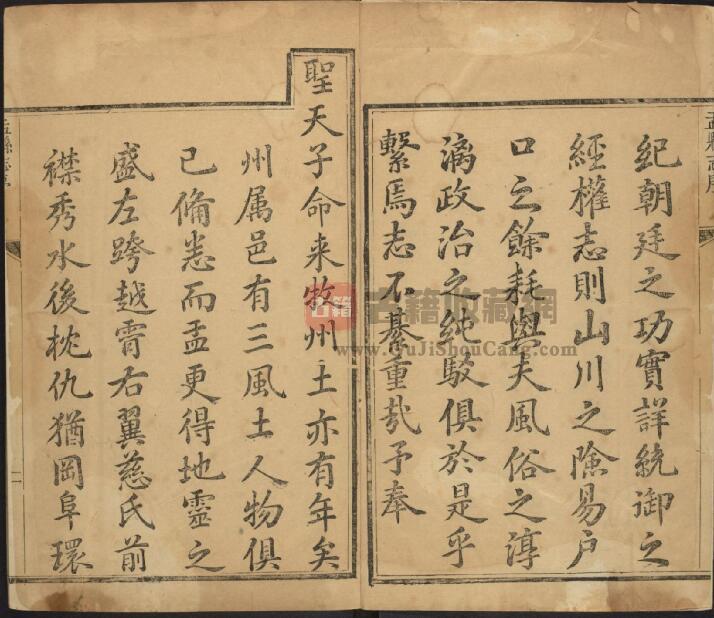 紀朝廷之功實詳統御之
經權志則山川之險易户
口之餘耗與夫風俗之淳
漓政治之純駁俱於是乎
繫焉志不綦重㢤予奉
聖天子命来牧州土亦有年矣
州属邑有三風土人物俱
已備悉而盂更得地靈之
盛左跨越霄右翼慈氏前
襟秀水後枕仇猶岡阜環
盂縣志序
二
古籍
古籍收藏網
www.GuJiShouCang.com